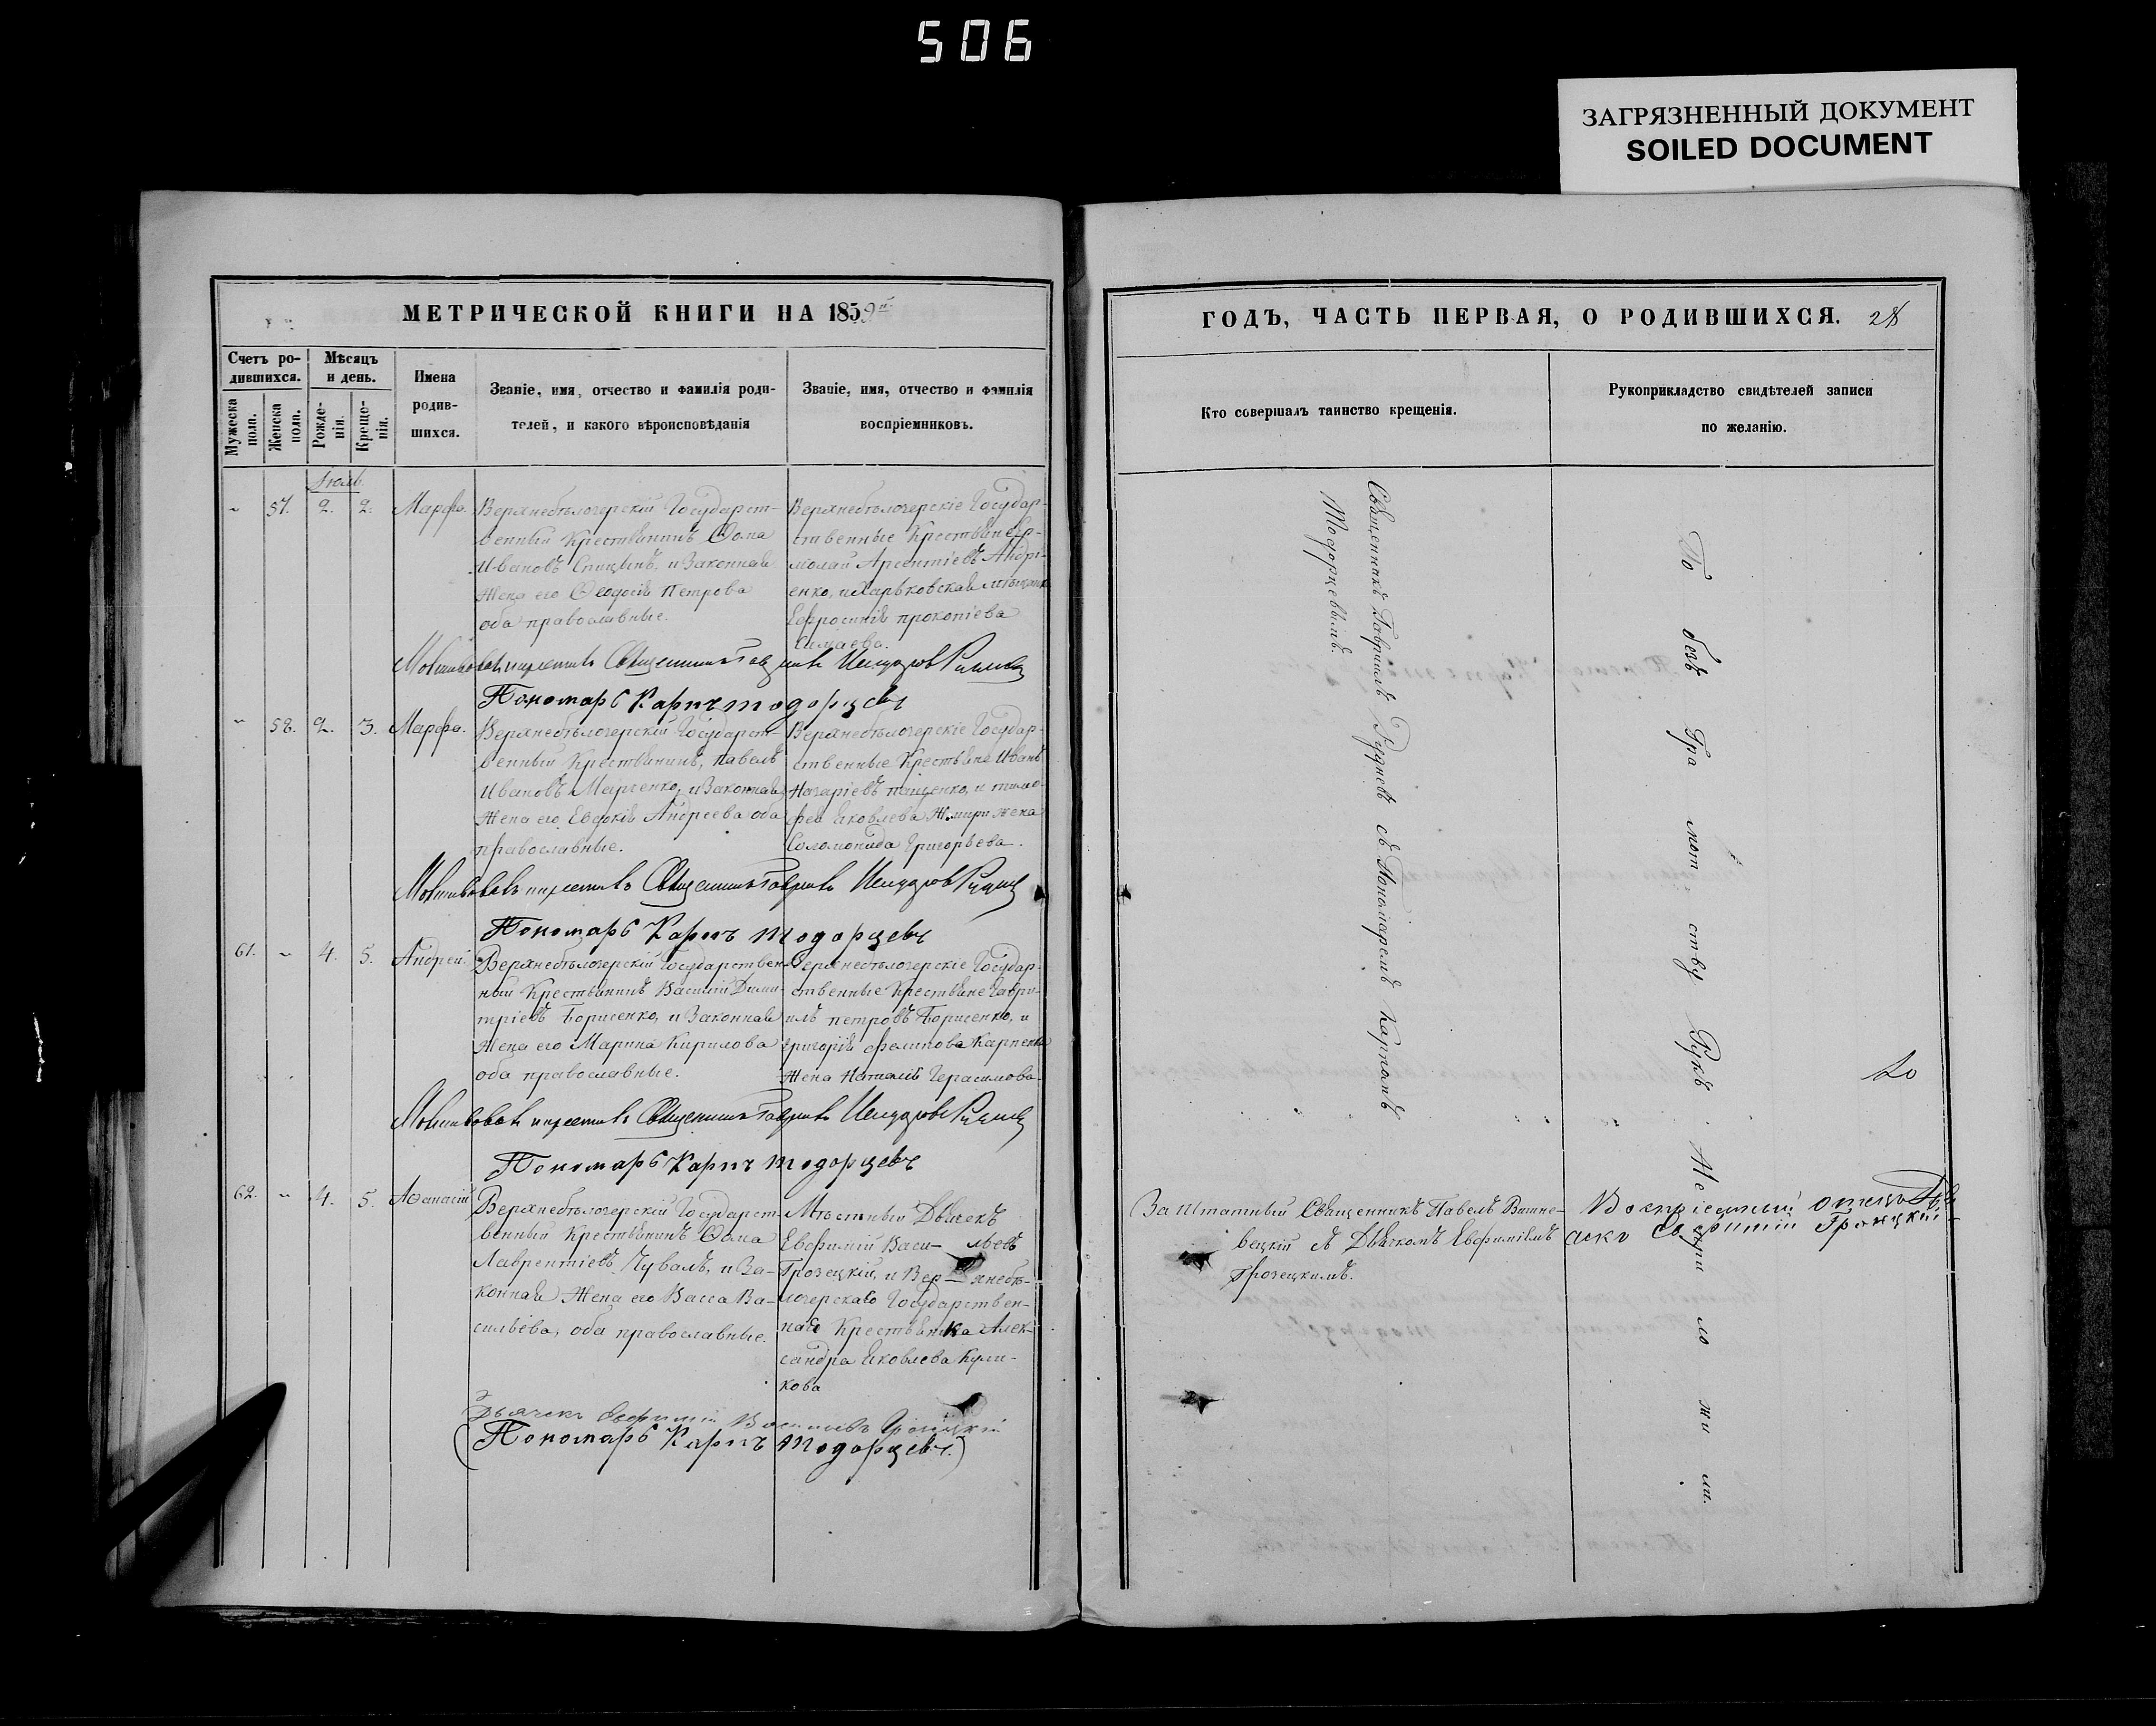 506
ЗАГРЯЗНЕННЫЙ ДОКУМЕНТ
SOILED DOCUMENT
МЕТРИЧЕСКОЙ КНИГИ НА 1859й
Счетъ ро-
дившихся.
Мужеска пола.
Женска пола.
Мѣсяцъ
и день.
Рожде-
нія.
Креще-
нія.
Имена
родив-
шихся.
Званіе, имя, отчество и фамилія роди-
телей, и какого вѣроисповѣданія
Званіе, имя, отчество и фамилія
воспріемниковъ.
Іюль
~ 57. 2. 2. Марфа.
Верхнебѣлогерскій Государст-
венный Крестьянинъ Ѳома
Ивановъ Спицынъ, и Законная
Жена его Ѳеодосія Петрова
оба православные.
Верхнебѣлогерскіе Государ-
ственные Крестьяне Ер-
молай Арсентіевъ Андрі-
енко, и Харьковская мѣщанка
Евфросинія прокопіева
Молитвовалъ и крестилъ Священникъ Гавріилъ
Пономарь Карпъ Тодорцевъ
~ 58. 2. 3. Марфа.
Верхнебѣлогерскій Государст-
венный Крестьянинъ, павелъ
Ивановъ Марченко, и Законная
Жена его Евдокія Андреева оба
православные.
Верхнебѣлогерскіе Государ-
ственные Крестьяне Иванъ
Назаріевъ пащенко, и тимо-
фея Яковлева Жмири жена
Соломонида Григорьева.
Молитвовалъ и крестилъ Священникъ Гавріилъ
Пономарь Карпъ Тодорцевъ
61. ~ 4. 5. Андрей.
Верхнебѣлогерскій Государствен-
ный Крестьянинъ Василій Дими-
тріевъ Борисенко, и Законная
Жена его Марина Кирилова
оба православные.
Верхнебѣлогерскіе Государ-
ственные Крестьяне Гаври-
илъ петровъ Борисенко, и
григорія филипова Карпенка
Жена Наталія Герасимова
Молитвовалъ и крестилъ Священникъ Гавріилъ
Пономарь Карпъ Тодорцевъ
62. ~ 4. 5. Аѳанасій
Верхнебѣлогерскій Государст-
венный Крестьянинъ Ѳома
Лаврентіевъ Чувалъ, и За-
конная Жена его Васса Ва-
сильева, оба православные.
Мѣстный Дьячекъ
Евфимій Васи- льевъ
Грозецкій, и Вер- хнебѣ-
логерская Государствен-
ная Крестьянка Алек-
сандра Яковлева Кули-
кова
Дьячекъ Евфимій Васильевъ Грозецкій
(Пономарь Карпъ Тодорцевъ.)
ГОДЪ, ЧАСТЬ ПЕРВАЯ, О РОДИВШИХСЯ. 28
Кто совершалъ таинство крещенія.
Рукоприкладство свидѣтелей записи
по желанію.
Священникъ Гавріилъ Рудневъ съ Пономаремъ Карпомъ
Тодорцевымъ.
По безъ Гра мот ству Рукъ Не при ло жи ли.
Заштатный Священникъ Павелъ Вишне-
вецкій съ Дьячкомъ Евфиміемъ
Грозецкимъ.
Евфимій Грозецкій